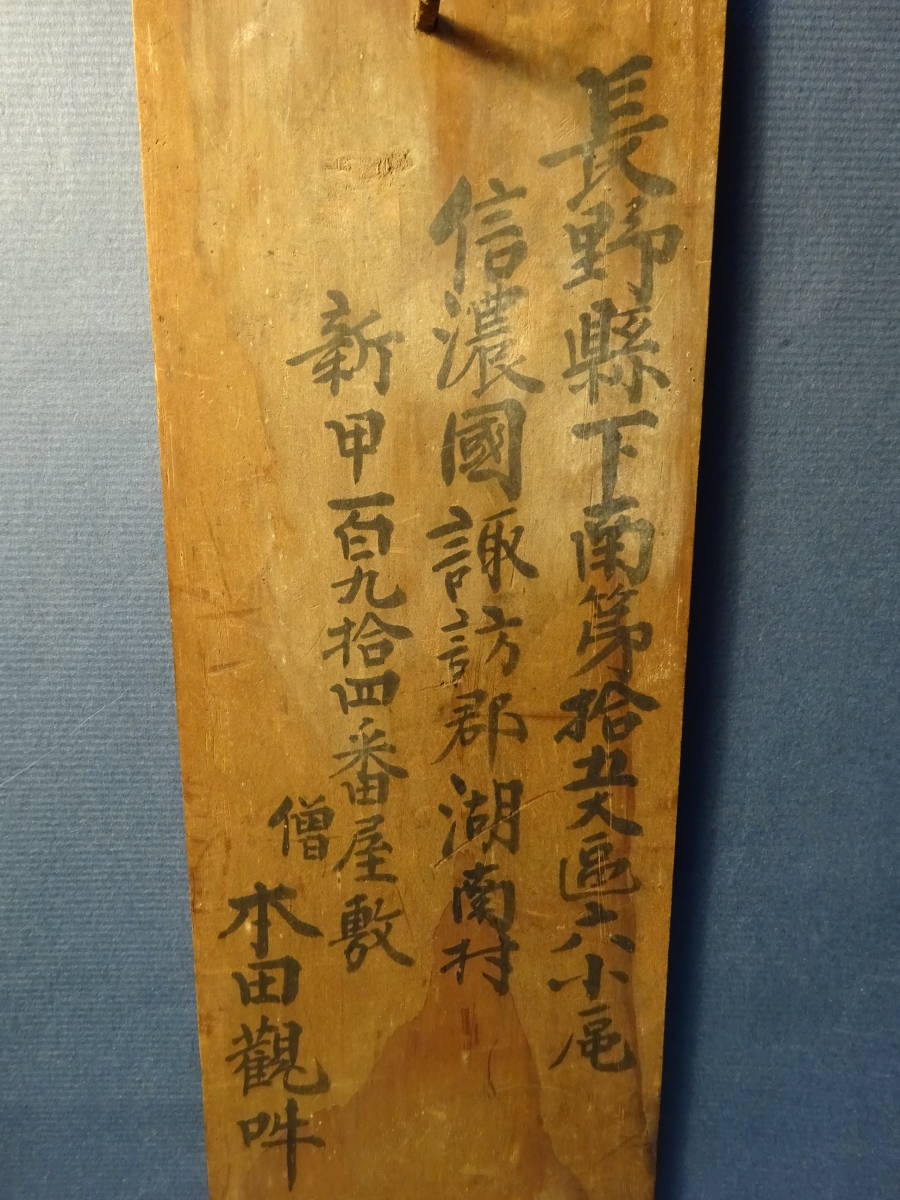 長野縣下南第拾五大區六小區
信濃國諏訪郡湖南村
新甲一百九拾四番屋敷
僧 本田觀吽